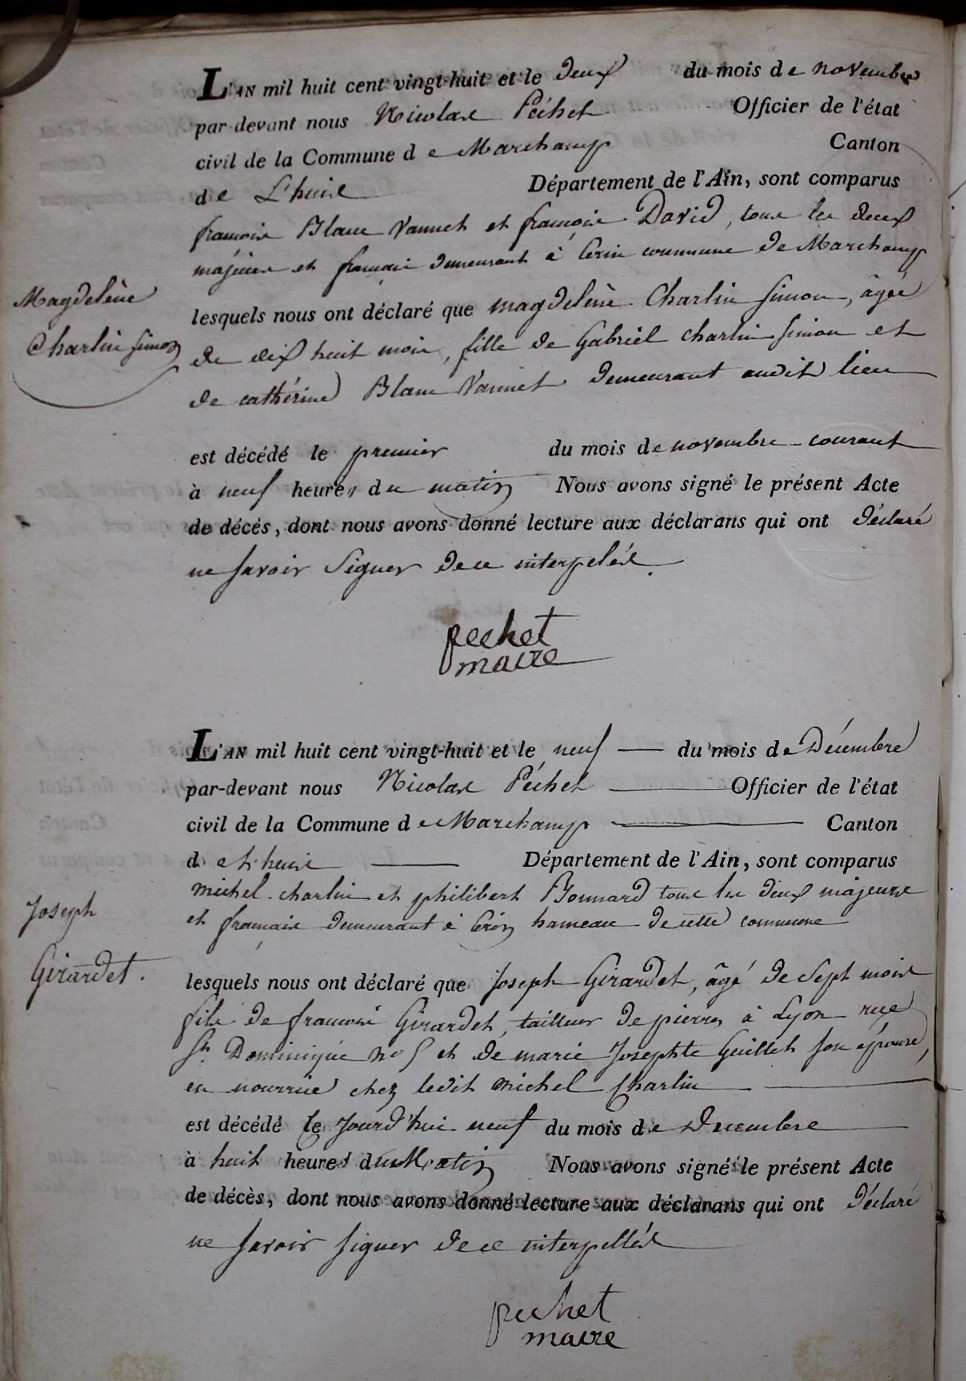 L'AN mil huit cent vingt-huit et le deux du mois de novembre
par-devant nous Nicolas Péchet Officier de l'état
civil de la Commune de Marchamp Canton
de L'huis Département de l'Ain, sont comparus
françois Blanc Vannet et françois David, tous les deux
majeurs et français demeurant à Cerin commune de Marchamp
Magdeleine
Charlin Simon
lesquels nous ont déclaré que magdeleine Charlin Simon, âgée
de dix huit mois, fille de Gabriel Charlin Simon et
de cathérine Blanc Vannet demeurant audit lieu
est décédé le premier du mois de novembre courant
à neuf heures du matin Nous avons signé le présent Acte
de décés, dont nous avons donné lecture aux déclarans qui ont déclaré
ne savoir signer de ce interpelés.
pechet
maire
L'AN mil huit cent vingt-huit et le neuf du mois de Décembre
par-devant nous Nicolas Péchet Officier de l'état
civil de la Commune de Marchamp Canton
de L'huis Département de l'Ain, sont comparus
michel charlin et philibert Bonnard tous les deux majeurs
et français demeurant à Cerin hameau de cette commune
Joseph
Girardet.
lesquels nous ont déclaré que Joseph Girardet, âgé de sept mois
fils de françois Girardet, tailleur de pierres à Lyon rue
St Dominique no 5 et de marie Josephte Guillet son épouse,
en nourrice chez ledit michel Charlin
est décédé le jourd'hui neuf du mois de Décembre
à huit heures du Matin Nous avons signé le présent Acte
de décès, dont nous avons donné lecture aux déclarans qui ont déclaré
ne savoir signer de ce interpellés
pechet
maire